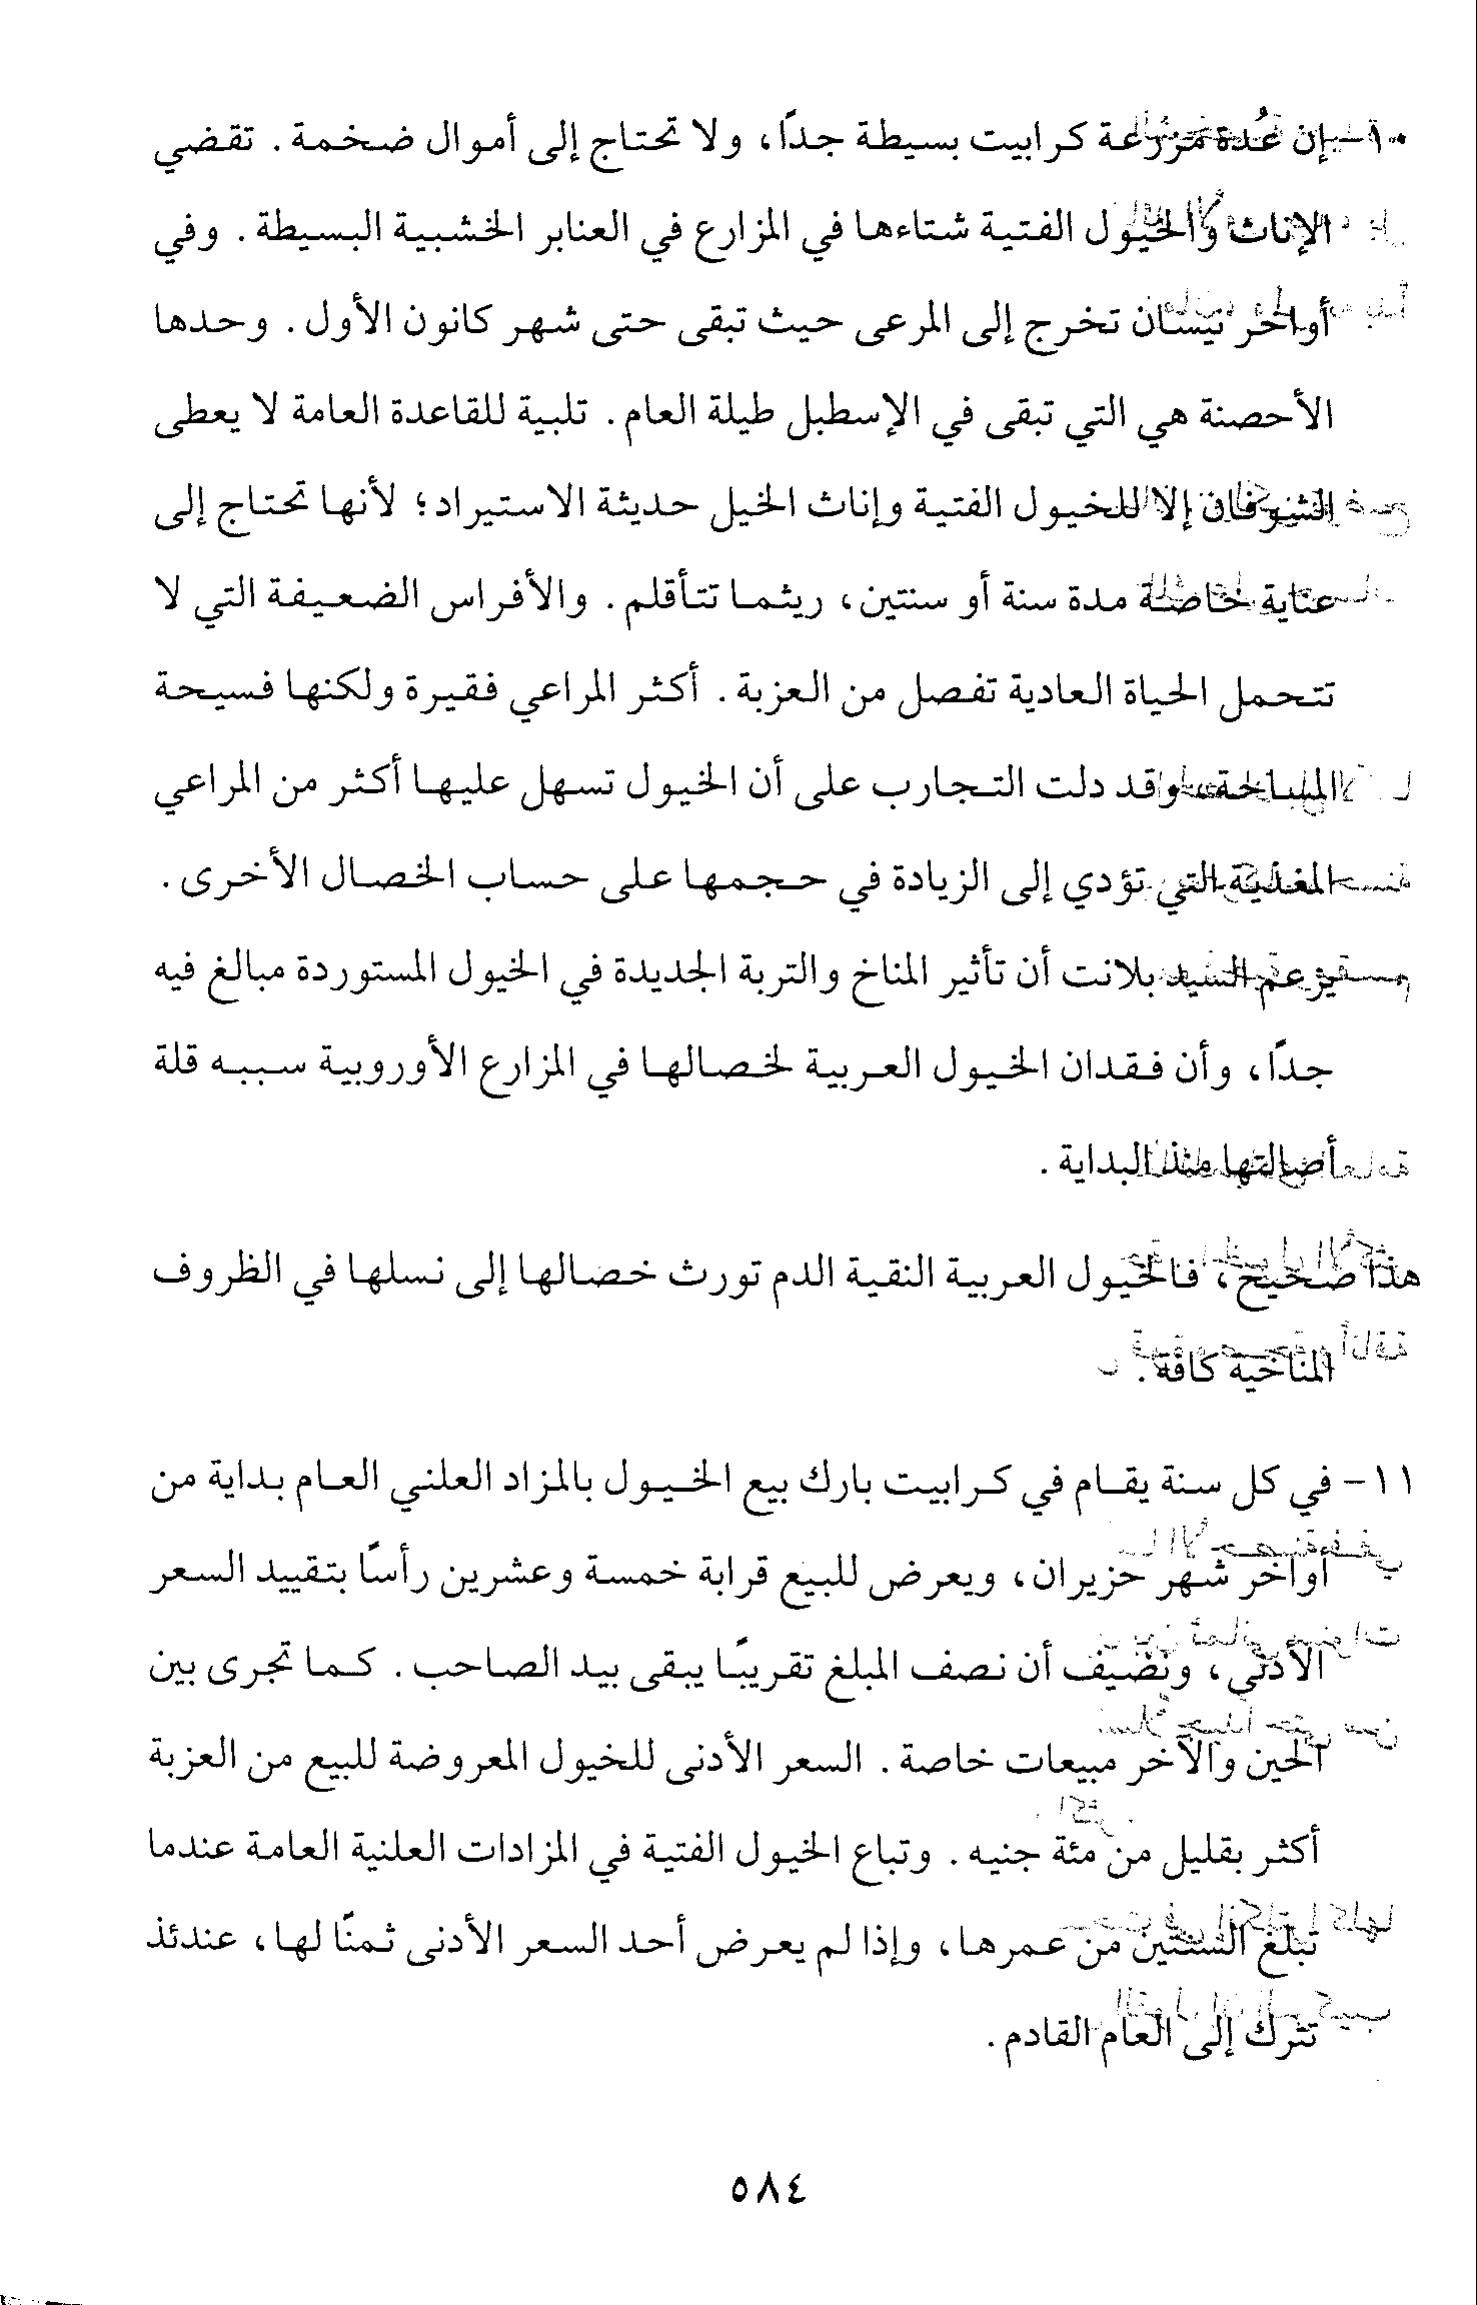 ١٠- إن عُدة مزرعة كرابيت بسيطة جدًا، ولا تحتاج إلى أموال ضخمة. تقضي
الإناث والخيول الفتية شتاءها في المزارع في العنابر الخشبية البسيطة. وفي
أواخر نيسان تخرج إلى المرعى حيث تبقى حتى شهر كانون الأول. وحدها
الأحصنة هي التي تبقى في الإسطبل طيلة العام. تلبية للقاعدة العامة لا يعطى
الشوفان إلا للخيول الفتية وإناث الخيل حديثة الاستيراد؛ لأنها تحتاج إلى
عناية خاصة مدة سنة أو سنتين، ريثما تتأقلم. والأفراس الضعيفة التي لا
تتحمل الحياة العادية تفصل من العزبة. أكثر المراعي فقيرة ولكنها فسيحة
المساحة، وقد دلت التجارب على أن الخيول تسهل عليها أكثر من المراعي
المغذية التي تؤدي إلى الزيادة في حجمها على حساب الخصال الأخرى.
يزعم السيد بلانت أن تأثير المناخ والتربة الجديدة في الخيول المستوردة مبالغ فيه
جدًا، وأن فقدان الخيول العربية لخصالها في المزارع الأوروبية سببه قلة
أصالتها منذ البداية.
هذا صحيح، فالخيول العربية النقية الدم تورث خصالها إلى نسلها في الظروف
المناخية كافة.
١١- في كل سنة يقام في كرابيت بارك بيع الخيول بالمزاد العلني العام بداية من
أواخر شهر حزيران، ويعرض للبيع قرابة خمسة وعشرين رأسًا بتقييد السعر
الأدنى، ونضيف أن نصف المبلغ تقريبًا يبقى بيد الصاحب. كما تجرى بين
الحين والآخر مبيعات خاصة. السعر الأدنى للخيول المعروضة للبيع من العزبة
أكثر بقليل من مئة جنيه. وتباع الخيول الفتية في المزادات العلنية العامة عندما
تبلغ السنتين من عمرها، وإذا لم يعرض أحد السعر الأدنى ثمنًا لها، عندئذ
تترك إلى العام القادم.
٥٨٤